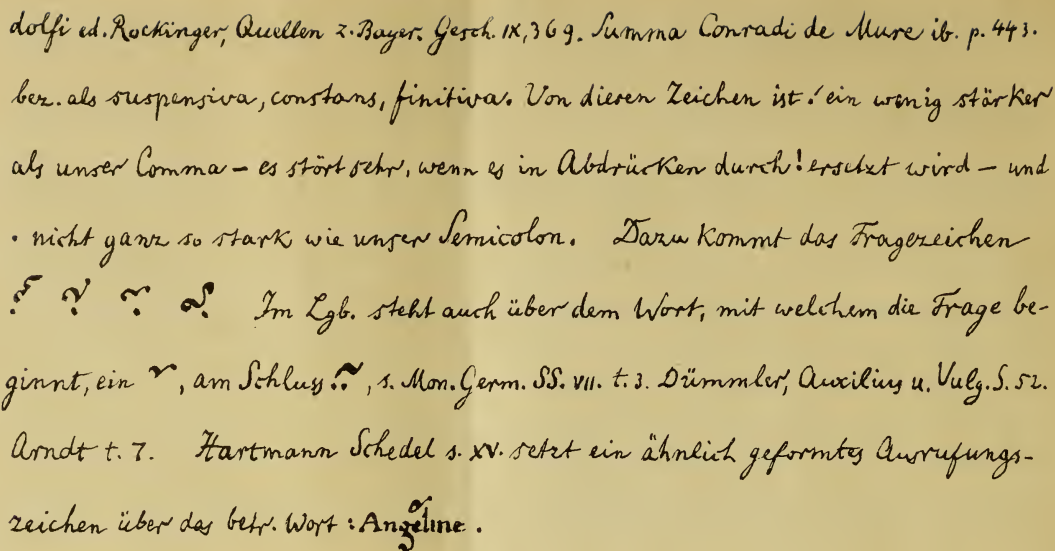 dolfi ed. Rockinger, Quellen z. Bayer. Gesch. IX, 369. Summa Conradi de Mure ib. p. 443.
bez. als suspensiva, constans, finitiva. Von diesen Zeichen ist ⸵ ein wenig stärker
als unser Comma – es stört sehr, wenn es in Abdrücken durch ! ersetzt wird – und
· nicht ganz so stark wie unser Semicolon. Dazu kommt das Fragezeichen
Im Lgb. steht auch über dem Wort, mit welchem die Frage be-
ginnt, ein ~, am Schluss , s. Mon. Germ. SS. VII. t. 3. Dümmler, Auxilius u. Vulg. S. 52.
Arndt t. 7. Hartmann Schedel s. XV. setzt ein ähnlich geformtes Ausrufungs-
zeichen über das betr. Wort : Angeline .